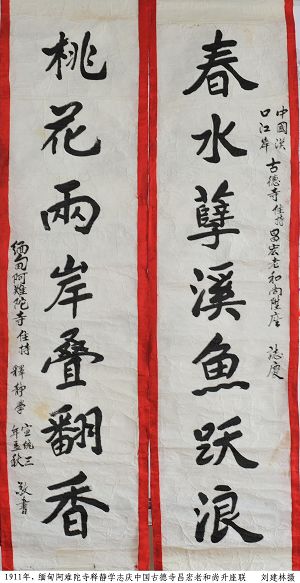 中國漢
口江岸
古德寺住持昌宏老和尚陞座 誌慶
春水孽溪魚跃浪
桃花兩岸叠翻香
缅甸阿难陀寺住持 釋静學
宣統三
年孟秋
敬書
1911年，缅甸阿难陀寺释静学志庆中国古德寺昌宏老和尚升座联 刘建林摄